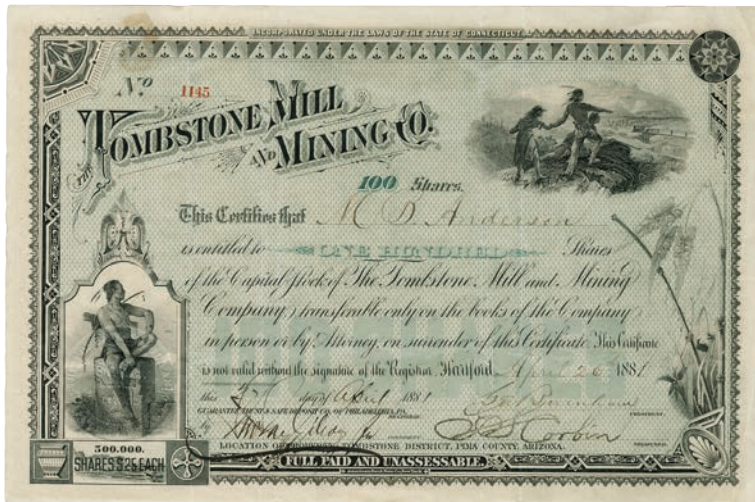 INCORPORATED UNDER THE LAWS OF THE STATE OF CONNECTICUT.
No 1145
THE TOMBSTONE MILL
AND MINING CO.
100 Shares.
This Certifies that M D. Anderson
is entitled to ONE HUNDRED Shares
of the Capital Stock of The Tombstone Mill and Mining
Company, transferable only on the books of the Company
in person or by Attorney, on surrender of this Certificate. This Certificate
is not valid without the signature of the Registrar. Hartford, April 26 1881
this day of April 1881
GUARANTEE TRUST & SAFE DEPOSIT CO. OF PHILADELPHIA, PA.
PRESIDENT.
by
LOCATION OF PROPERTY, TOMBSTONE DISTRICT, PIMA COUNTY, ARIZONA.
500.000.
SHARES $25 EACH
FULL PAID AND UNASSESSABLE.